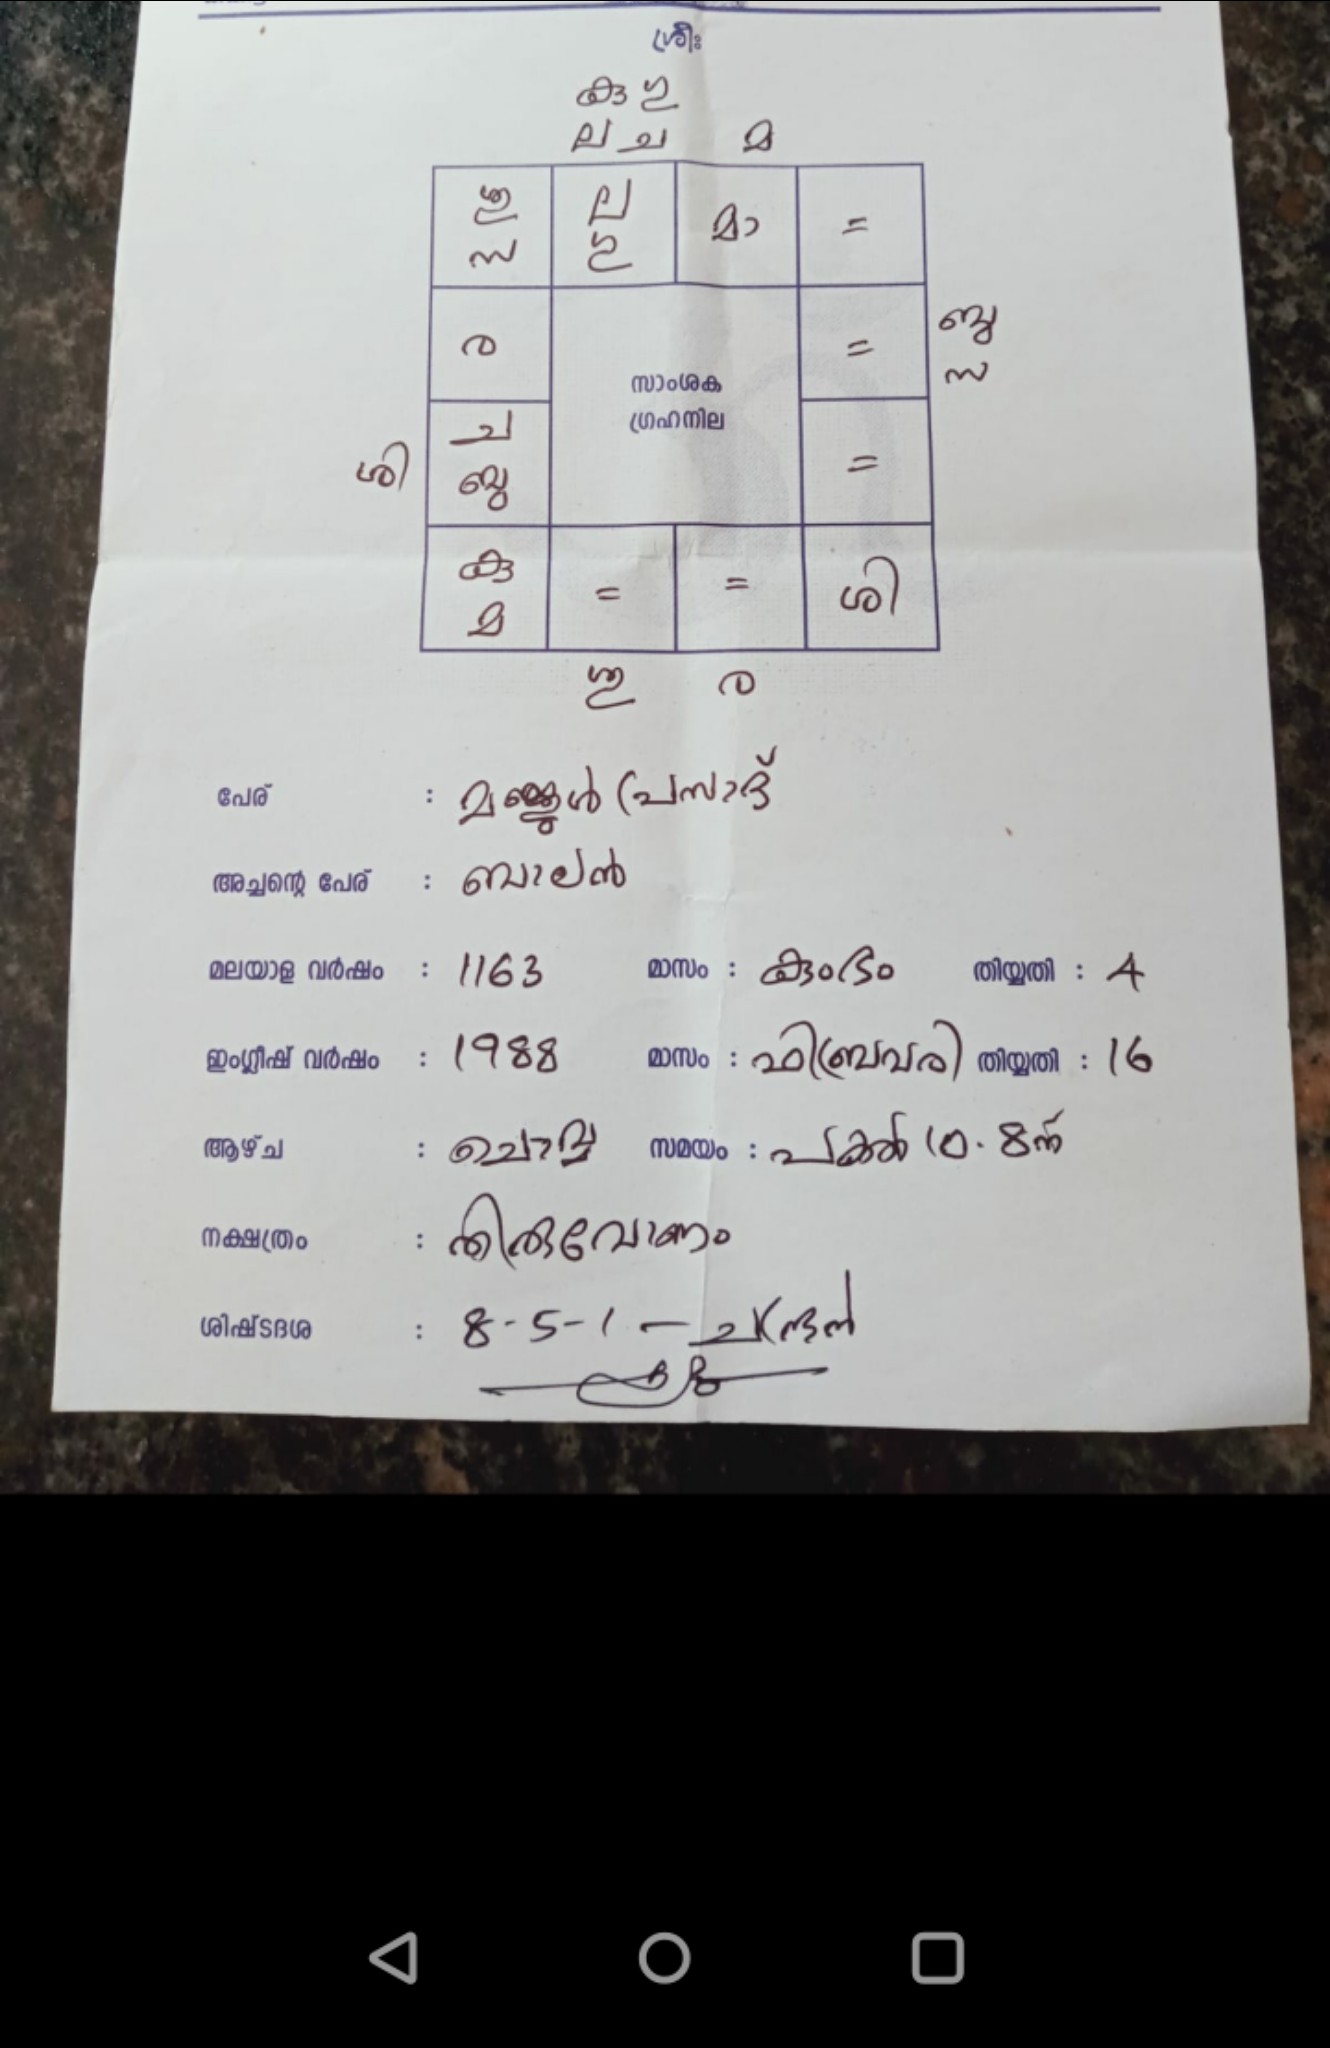 ശ്രീഃ
കു ഗു
ല ച മ
ശു ല മാ =
സ ഗു
ര = ബു
സാംശക സ
ഗ്രഹനില
ശി ച =
ബു
കു = = ശി
മ
ശു ര
പേര് : മഞ്ജുൾ പ്രസാദ്
അച്ഛന്റെ പേര് : ബാലൻ
മലയാള വർഷം : 1163 മാസം : കുംഭം തിയ്യതി : 4
ഇംഗ്ലീഷ് വർഷം : 1988 മാസം : ഫിബ്രവരി തിയ്യതി : 16
ആഴ്ച : ചൊവ്വ സമയം : പകൽ 10.8ന്
നക്ഷത്രം : തിരുവോണം
ശിഷ്ടദശ : 8-5-1 - ചന്ദ്രൻ